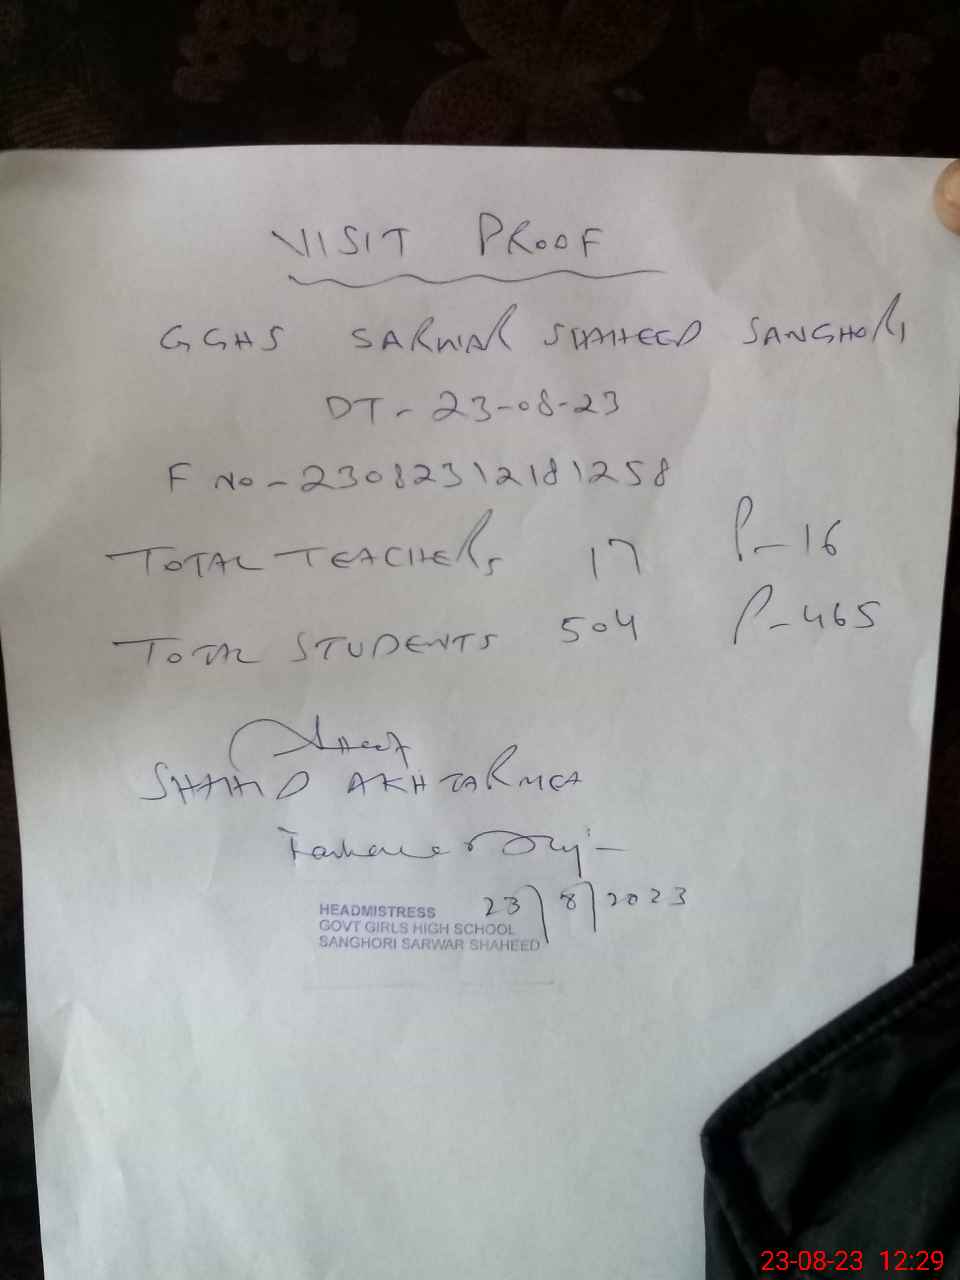 VISIT PROOF
GGHS SARWAR SHAHEED SANGHORI
DT - 23-08-23
F No - 23082312181258
TOTAL TEACHERS 17 P-16
TOTAL STUDENTS 504 P-465
SHAHID AKHTAR MEA
23/8/2023
HEADMISTRESS
GOVT GIRLS HIGH SCHOOL
SANGHORI SARWAR SHAHEED
23-08-23 12:29